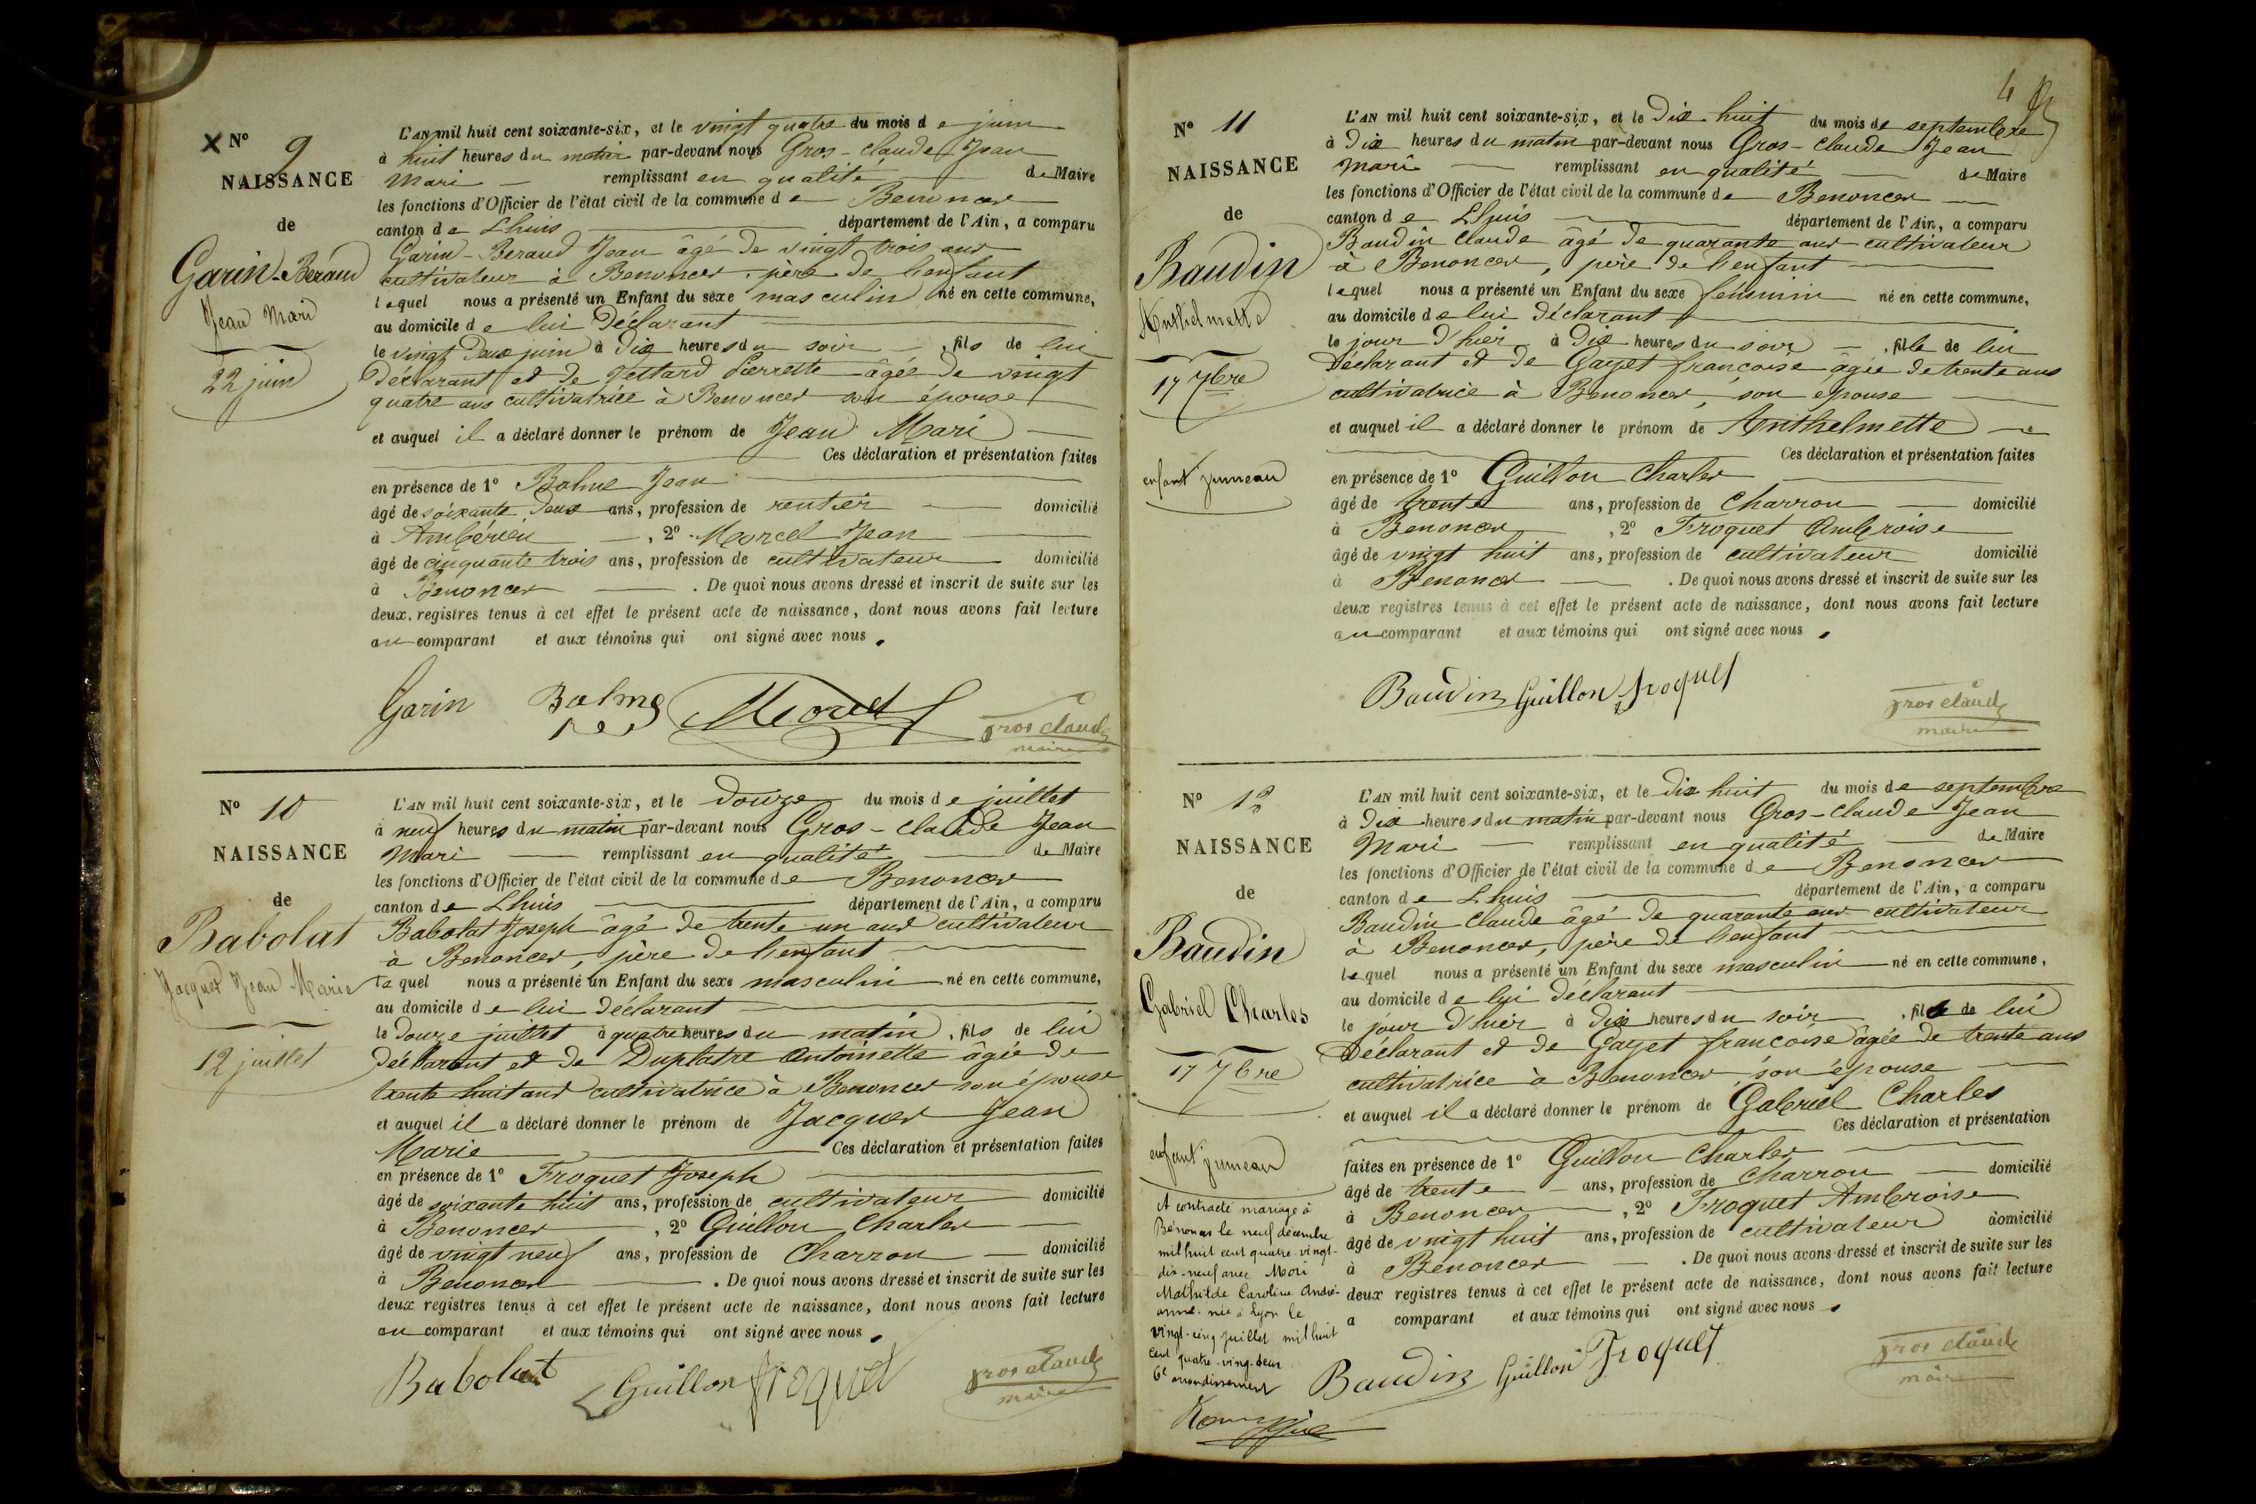 N° 9
NAISSANCE
de
Garin-Beraud
Jean Mari
22 juin
L'AN mil huit cent soixante-six, et le vingt quatre du mois de juin
à huit heures du matin par-devant nous Gros-claude Jean
Mari remplissant en qualité de Maire
les fonctions d'Officier de l'état civil de la commune de Benonces
canton de Lhuis département de l'Ain, a comparu
Garin-Beraud Jean âgé de vingt trois ans
cultivateur à Benonces, père de l'enfant
lequel nous a présenté un Enfant du sexe masculin né en cette commune,
au domicile de lui déclarant
le vingt deux juin à dix heures du soir, fils de lui
déclarant et de Pierrette âgée de vingt
quatre ans cultivatrice à Benonces son épouse
et auquel il a déclaré donner le prénom de Jean Mari
Ces déclaration et présentation faites
en présence de 1° Balme Jean
âgé de soixante deux ans, profession de rentier domicilié
à Ambérieu, 2° Morcel Jean
âgé de cinquante trois ans, profession de cultivateur domicilié
à Benonces. De quoi nous avons dressé et inscrit de suite sur les
deux registres tenus à cet effet le présent acte de naissance, dont nous avons fait lecture
au comparant et aux témoins qui ont signé avec nous.
Garin Balme Morcel gros claude
maire
N° 10
NAISSANCE
de
Babolat
Jacques Jean Marie
12 juillet
L'AN mil huit cent soixante-six, et le douze du mois de juillet
à neuf heures du matin par-devant nous Gros-claude Jean
Mari remplissant en qualité de Maire
les fonctions d'Officier de l'état civil de la commune de Benonces
canton de Lhuis département de l'Ain, a comparu
Babolat Joseph âgé de trente un ans cultivateur
à Benonces, père de l'enfant
lequel nous a présenté un Enfant du sexe masculin né en cette commune,
au domicile de lui déclarant
le douze juillet à quatre heures du matin, fils de lui
déclarant et de Duplatre Antoinette âgée de
trente huit ans cultivatrice à Benonces son épouse
et auquel il a déclaré donner le prénom de Jacques Jean
Marie Ces déclaration et présentation faites
en présence de 1° Froquet Joseph
âgé de soixante huit ans, profession de cultivateur domicilié
à Benonces, 2° Guillon Charles
âgé de vingt neuf ans, profession de Charron domicilié
à Benonces. De quoi nous avons dressé et inscrit de suite sur les
deux registres tenus à cet effet le présent acte de naissance, dont nous avons fait lecture
au comparant et aux témoins qui ont signé avec nous.
Babolat Guillon froquet gros claude
maire
4
N° 11
NAISSANCE
de
Baudin
Anthelmette
17 7bre
enfant jumeau
L'AN mil huit cent soixante-six, et le Dix huit du mois de septembre
à Dix heures du matin par-devant nous Gros-claude Jean
Mari remplissant en qualité de Maire
les fonctions d'Officier de l'état civil de la commune de Benonces
canton de Lhuis département de l'Ain, a comparu
Baudin Claude âgé de quarante ans cultivateur
à Benonces, père de l'enfant
lequel nous a présenté un Enfant du sexe féminin né en cette commune,
au domicile de lui déclarant
le jour d'hier à Dix heures du soir, fille de lui
déclarant et de Gayet françoise âgée de trente ans
cultivatrice à Benonces, son épouse
et auquel il a déclaré donner le prénom de Anthelmette
Ces déclaration et présentation faites
en présence de 1° Guillon Charles
âgé de trente ans, profession de Charron domicilié
à Benonces, 2° Froquet Ambroise
âgé de vingt huit ans, profession de cultivateur domicilié
à Benonces. De quoi nous avons dressé et inscrit de suite sur les
deux registres tenus à cet effet le présent acte de naissance, dont nous avons fait lecture
au comparant et aux témoins qui ont signé avec nous.
Baudin Guillon froquet gros claude
maire
N° 12
NAISSANCE
de
Baudin
Gabriel Charles
17 7bre
enfant jumeau
A contracté mariage à
Bénonces le neuf décembre
mil huit cent quatre-vingt-
dix-neuf avec Mori
Mathilde Caroline André-
anne née à Lyon le
vingt-cinq juillet mil huit
cent quatre-ving-deux
6e arrondissement
L'AN mil huit cent soixante-six, et le dix huit du mois de septembre
à Dix heures du matin par-devant nous Gros-claude Jean
Mari remplissant en qualité de Maire
les fonctions d'Officier de l'état civil de la commune de Benonces
canton de Lhuis département de l'Ain, a comparu
Baudin Claude âgé de quarante ans cultivateur
à Benonces, père de l'enfant
lequel nous a présenté un Enfant du sexe masculin né en cette commune,
au domicile de lui déclarant
le jour d'hier à dix heures du soir, fils de lui
déclarant et de Gayet françoise âgée de trente ans
cultivatrice à Benonces, son épouse
et auquel il a déclaré donner le prénom de Gabriel Charles
Ces déclaration et présentation
faites en présence de 1° Guillon Charles
âgé de trente ans, profession de Charron domicilié
à Benonces, 2° Froquet Ambroise
âgé de vingt huit ans, profession de cultivateur domicilié
à Benonces. De quoi nous avons dressé et inscrit de suite sur les
deux registres tenus à cet effet le présent acte de naissance, dont nous avons fait lecture
a comparant et aux témoins qui ont signé avec nous.
Baudin Guillon froquet gros claude
maire